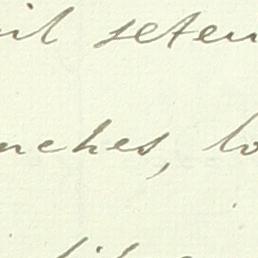 il seten
nches, lo